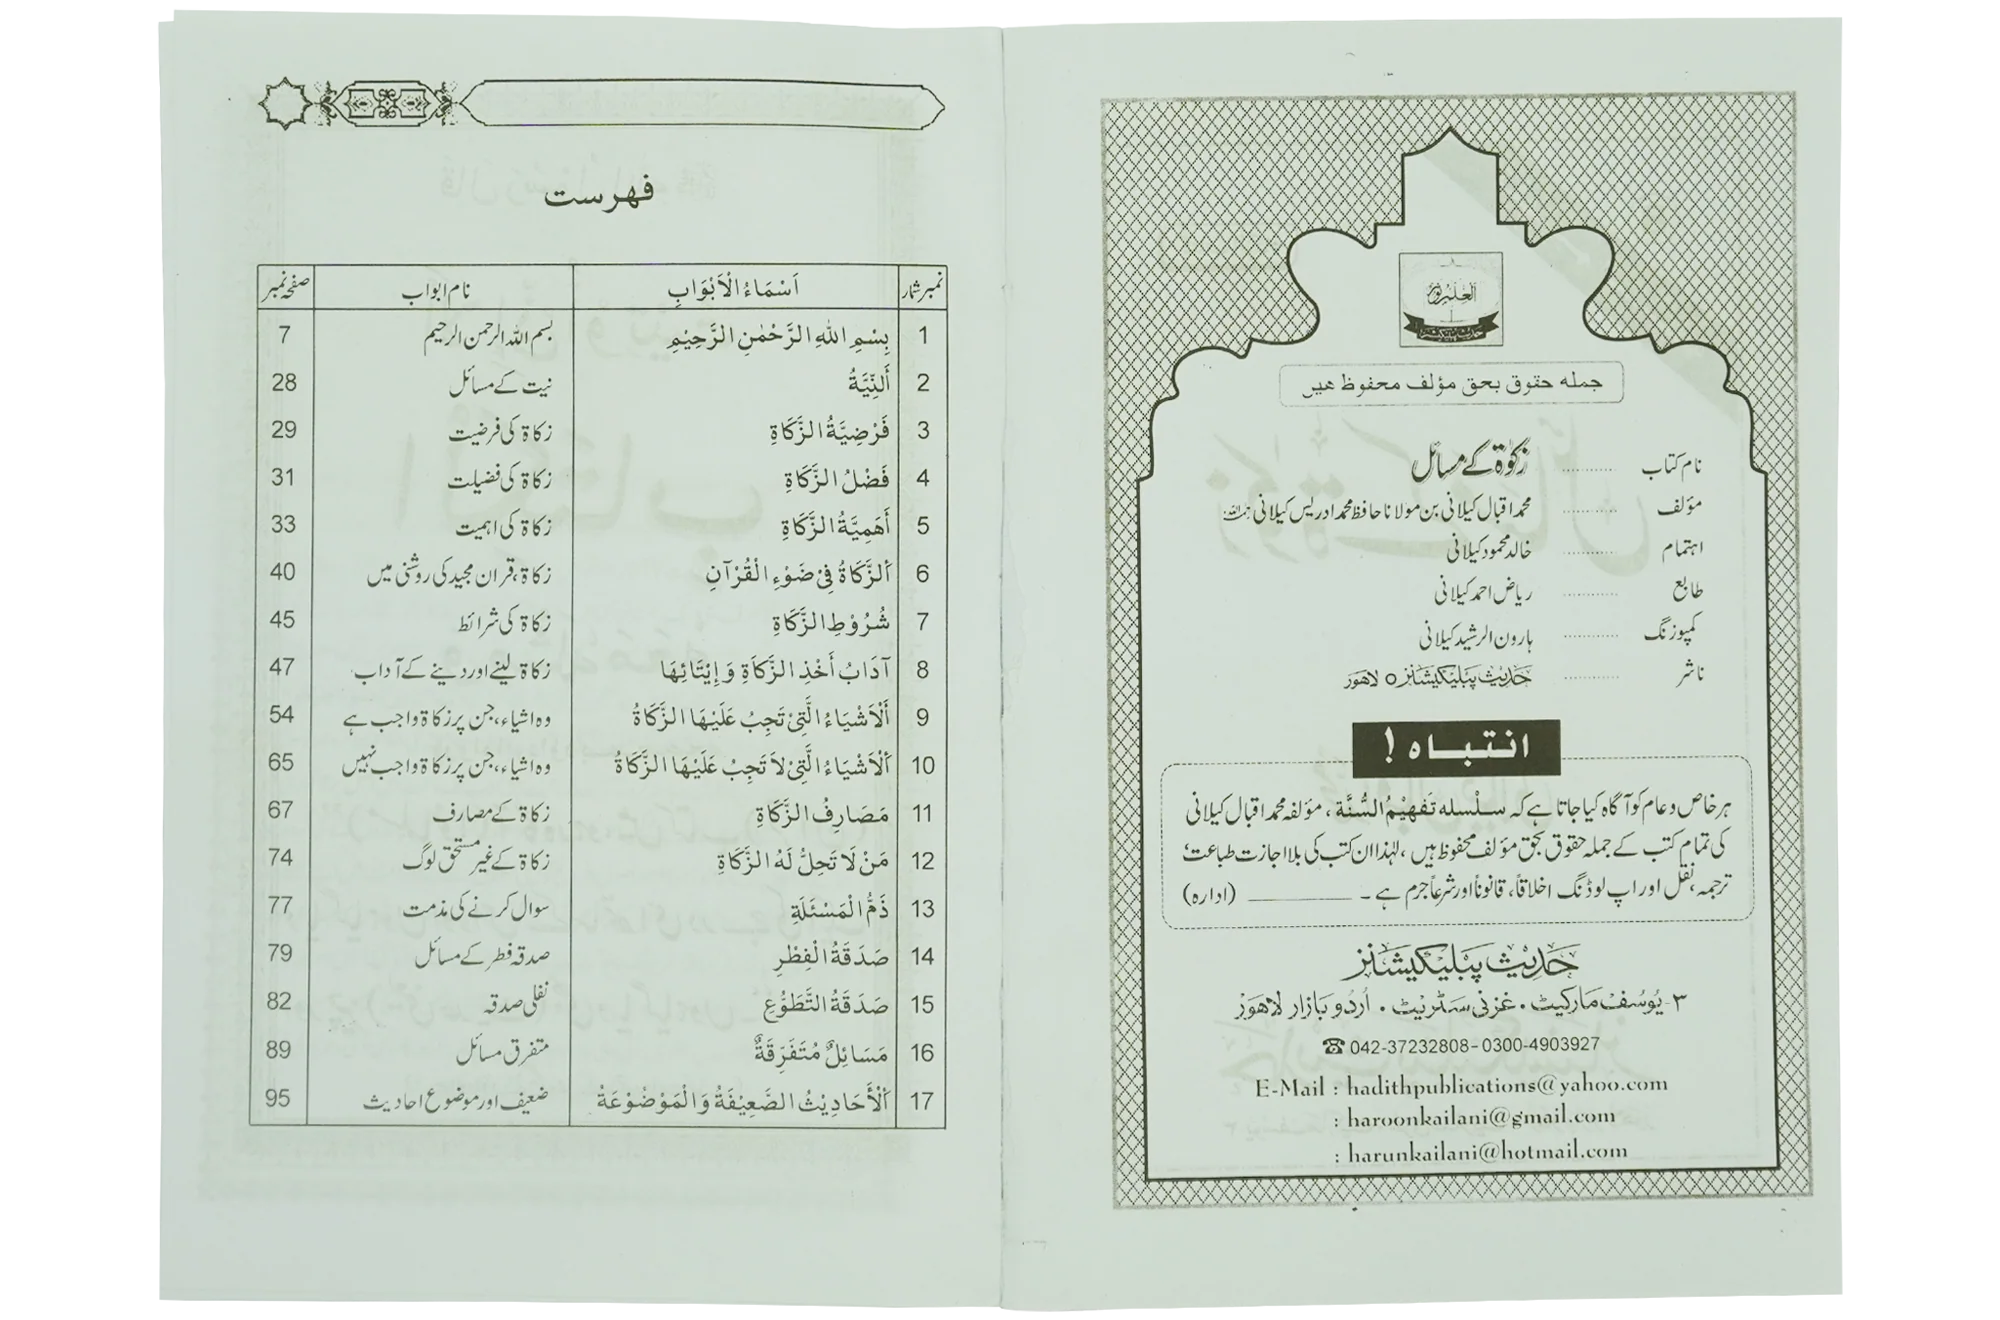 العلم نور
حدیث پبلیکیشنز
جملہ حقوق بحق مؤلف محفوظ ہیں
نام کتاب .......... زکوٰۃ کے مسائل
مؤلف .......... محمد اقبال کیلانی بن مولانا حافظ محمد ادریس کیلانی رحمہ اللہ
اہتمام .......... خالد محمود کیلانی
طابع .......... ریاض احمد کیلانی
کمپوزنگ .......... ہارون الرشید کیلانی
ناشر .......... حدیث پبلیکیشنز ○ لاہور
انتباہ !
ہر خاص و عام کو آگاہ کیا جاتا ہے کہ سلسلہ تَفہِیمُ السُّنَّة ، مؤلفہ محمد اقبال کیلانی
کی تمام کتب کے جملہ حقوق بحق مؤلف محفوظ ہیں ، لہٰذا ان کتب کی بلا اجازت طباعت،
ترجمہ، نقل اور اپ لوڈنگ اخلاقاً، قانوناً اور شرعاً جرم ہے ۔ ـــــــــــ (ادارہ)
حدیث پبلیکیشنز
۳- یوسف مارکیٹ . غزنی سٹریٹ . اُردو بازار لاہور
☎ 042-37232808 - 0300-4903927
E-Mail : hadithpublications@yahoo.com
: haroonkailani@gmail.com
: harunkailani@hotmail.com
فہرست
نمبر شمار اَسْمَاءُ الْاَبْوَابِ نام ابواب صفحہ نمبر
1 بِسْمِ اللهِ الرَّحْمٰنِ الرَّحِيْمِ بسم اللہ الرحمن الرحیم 7
2 أَلنِّيَّةُ نیت کے مسائل 28
3 فَرْضِيَّةُ الزَّكَاةِ زکاۃ کی فرضیت 29
4 فَضْلُ الزَّكَاةِ زکاۃ کی فضیلت 31
5 أَهَمِيَّةُ الزَّكَاةِ زکاۃ کی اہمیت 33
6 اَلزَّكَاةُ فِیْ ضَوْءِ الْقُرْآنِ زکاۃ، قرآن مجید کی روشنی میں 40
7 شُرُوْطِ الزَّكَاةِ زکاۃ کی شرائط 45
8 آدَابُ أَخْذِ الزَّكَاَةِ وَ إِيْتَائِهَا زکاۃ لینے اور دینے کے آداب 47
9 أَلْاَشْيَاءُ الَّتِیْ تَجِبُ عَلَيْهَا الزَّكَاةُ وہ اشیاء، جن پر زکاۃ واجب ہے 54
10 اَلْاَشْيَاءُ الَّتِیْ لاَ تَجِبُ عَلَيْهَا الزَّكَاةُ وہ اشیاء، جن پر زکاۃ واجب نہیں 65
11 مَصَارِفُ الزَّكَاةِ زکاۃ کے مصارف 67
12 مَنْ لَا تَحِلُّ لَهُ الزَّكَاةِ زکاۃ کے غیر مستحق لوگ 74
13 ذَمُّ الْمَسْئَلَةِ سوال کرنے کی مذمت 77
14 صَدَقَةُ الْفِطْرِ صدقہ فطر کے مسائل 79
15 صَدَقَةُ التَّطَوُّعِ نفلی صدقہ 82
16 مَسَائِلٌ مُتَفَرِقَةٌ متفرق مسائل 89
17 اَلْأَحَادِيْثُ الضَّعِيْفَةُ وَالْمَوْضُوْعَةُ ضعیف اور موضوع احادیث 95